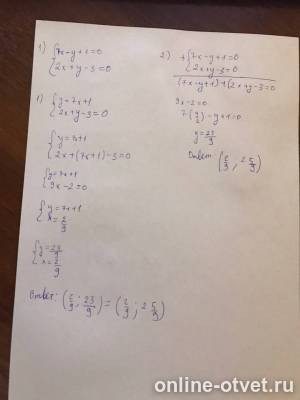 1) {7x-y+1=0
{2x+y-3=0
1) {y=7x+1
{2x+y-3=0
{y=7x+1
{2x+(7x+1)-3=0
{y=7x+1
{9x-2=0
{y=7x+1
{x=2/9
{y=23/9
{x=2/9
Ответ: (2/9; 23/9) = (2/9; 2 5/9)
2) +{7x-y+1=0
{2x+y-3=0
(7x-y+1)+(2x+y-3)=0
9x-2=0
7·(2/9)-y+1=0
y=23/9
Ответ: (2/9; 2 5/9)
online-otvet.ru